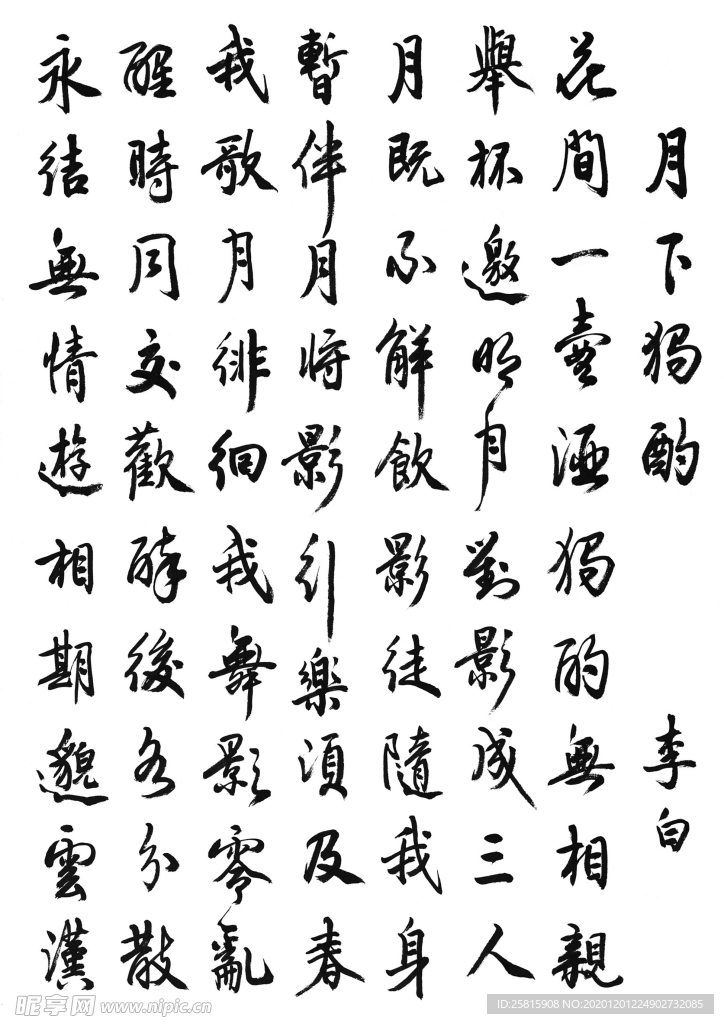 月下獨酌
李白
花間一壺酒獨酌無相親
舉杯邀明月對影成三人
月既不解飲影徒隨我身
暫伴月將影引樂須及春
我歌月徘徊我舞影零亂
醒時同交歡醉後各分散
永結無情遊相期邈雲漢
昵享网 www.nipic.cn
ID:25815908 NO:20201201224902732085